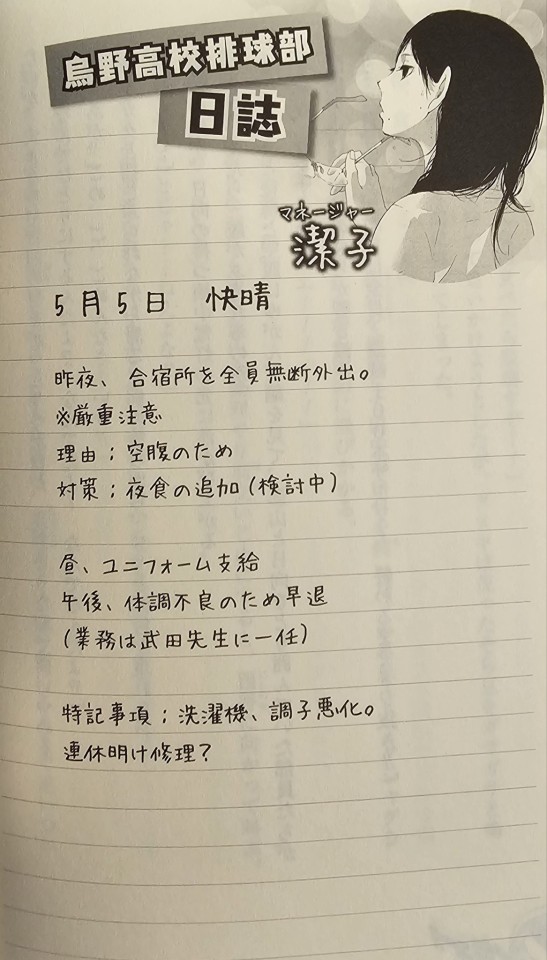 烏野高校排球部
日誌
マネージャー
潔子
5月5日 快晴
昨夜、合宿所を全員無断外出。
※厳重注意
理由；空腹のため
対策；夜食の追加(検討中)
昼、ユニフォーム支給
午後、体調不良のため早退
(業務は武田先生に一任)
特記事項；洗濯機、調子悪化。
連休明け修理？